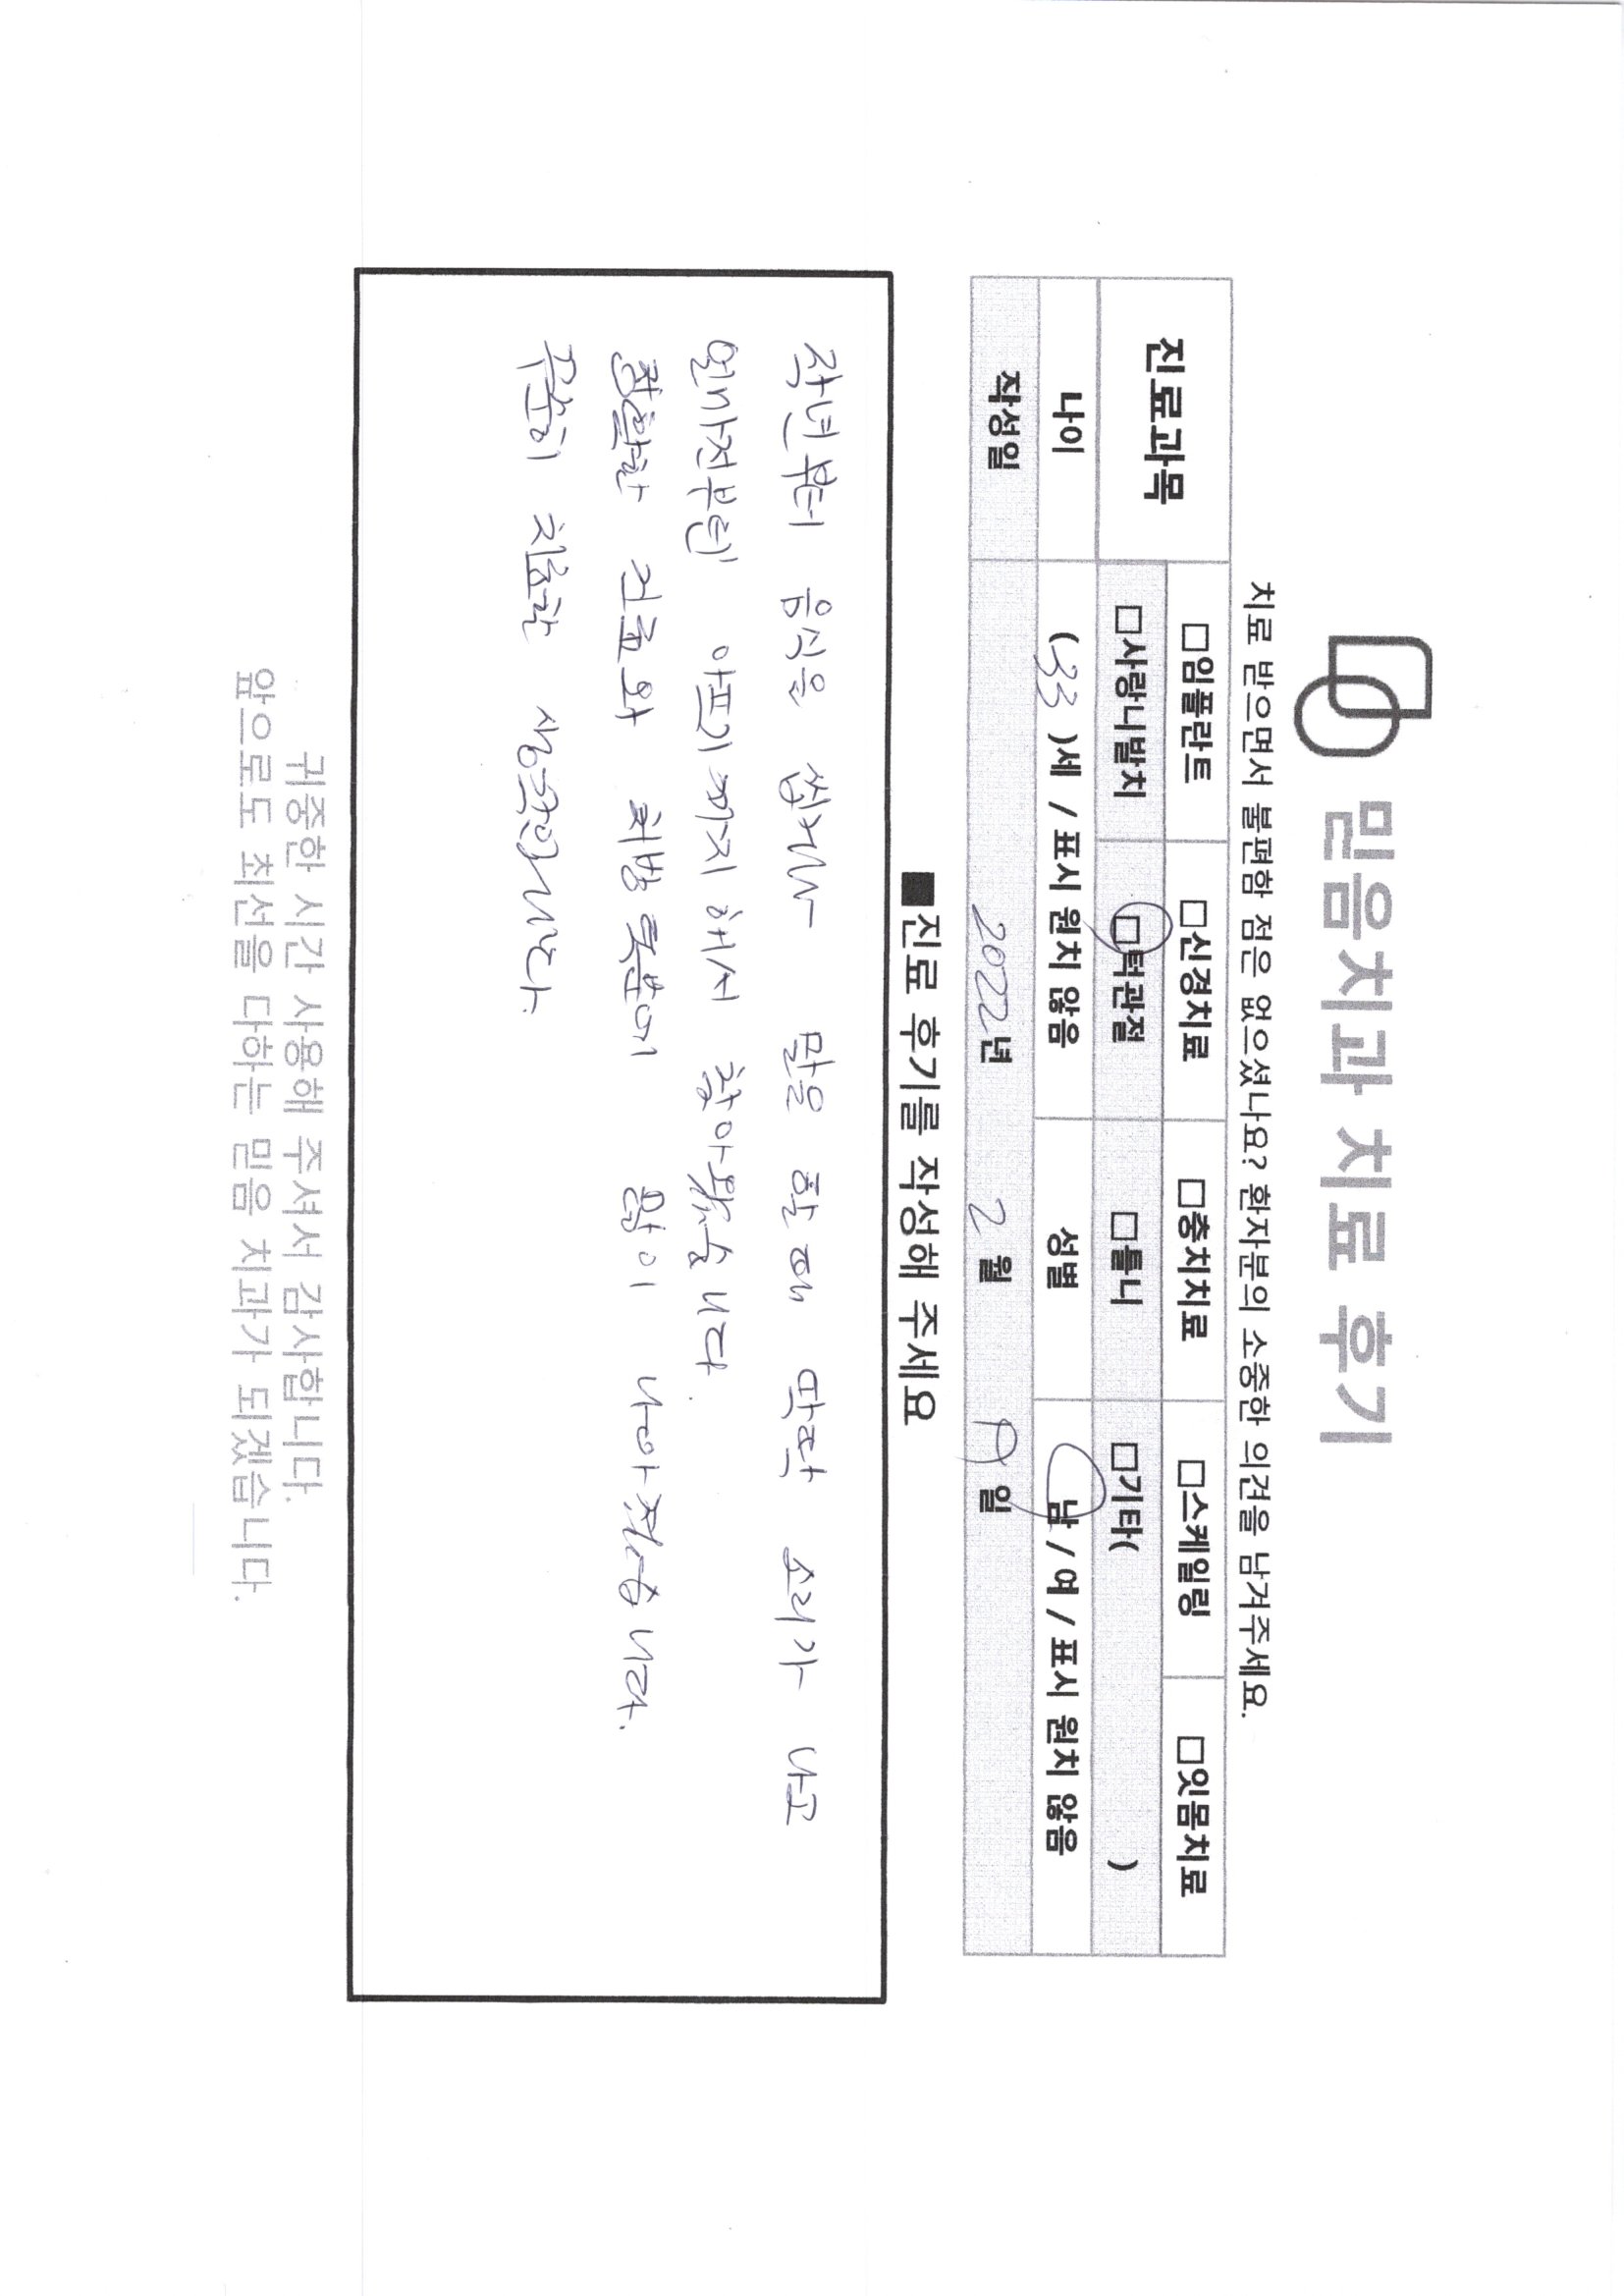 믿음치과 치료 후기
치료 받으면서 불편함 점은 없으셨나요? 환자분의 소중한 의견을 남겨주세요.
진료과목 □임플란트 □신경치료 □충치치료 □스케일링 □잇몸치료
□사랑니발치 □턱관절 □틀니 □기타( )
나이 ( 33 )세 / 표시 원치 않음 성별 남 / 여 / 표시 원치 않음
작성일 2022년 2월 9일
■진료 후기를 작성해 주세요
작년부터 음식을 씹거나 말을 할 때 딱딱 소리가 나고
얼마전부턴 아프기까지 해서 찾아왔습니다.
정확한 진료와 처방 덕분에 많이 나아졌습니다.
꾸준히 치료할 생각입니다.
귀중한 시간 사용해 주셔서 감사합니다.
앞으로도 최선을 다하는 믿음 치과가 되겠습니다.